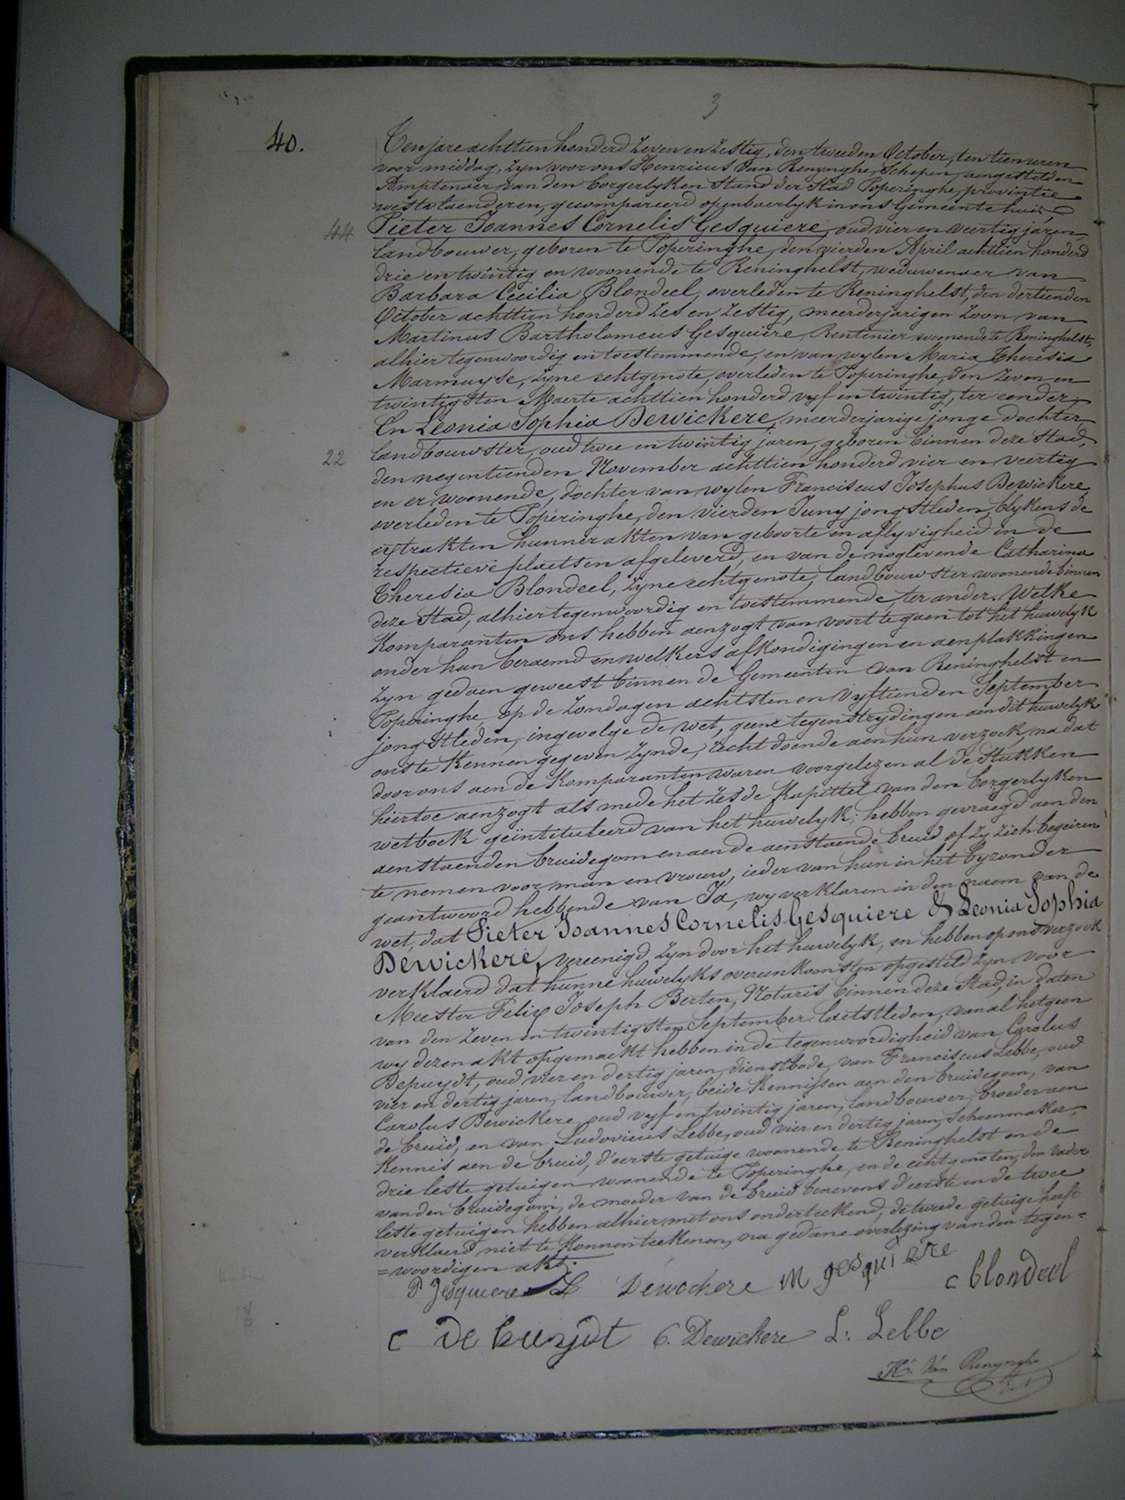 3
40.
Ten jare achttien honderd zeven en zestig, den tweeden October, ten tien uren
voor middag, zyn voor ons Henricus Van Renynghe, Schepen, aengestelden
Amptenaer van den borgerlyken Stand der Stad Poperinghe, provintie
westvlaenderen, gecompareerd openbaerlyk in ons Gemeente huis
44 Pieter Joannes Cornelis Gesquiere, oud vier en veertig jaren
landbouwer, geboren te Poperinghe, den vierden April achttien honderd
drie en twintig en woonende te Reninghelst, weduwenaer van
Barbara Cecilia Blondeel, overleden te Reninghelst, den dertienden
October achttien honderd zes en zestig, meerderjarigen zoon van
Martinus Bartholomeus Gesquiere, Rentenier woonende te Reninghelst,
alhier tegenwoordig en toestemmende, en van wylen Maria Theresia
Marmuyse, zyne echtgenote, overleden te Poperinghe, den zeven en
twintigsten Maerte achttien honderd vyf en twintig, ter eender,
En Leonia Sophia Dewickere, meerderjarige jonge dochter
22 landbouwster, oud twee en twintig jaren, geboren binnen deze Stad,
den negentienden November achttien honderd vier en veertig
en er woonende, dochter van wylen Franciscus Josephus Dewickere
overleden te Poperinghe, den vierden Juny jongstleden, blykens de
extrakten hunner akten van geboorte en aflyvigheid in de
respectieve plaetsen afgeleverd, en van de noglevende Catharina
Theresia Blondeel, zyne echtgenote, landbouwster woonende binnen
deze Stad, alhier tegenwoordig en toestemmende, ter ander. Welke
Komparanten ons hebben aenzogt van voort te gaen tot het huwelyk
onder hun beraemd en welkers afkondigingen en aenplakkingen
zyn gedaen geweest binnen de Gemeenten van Reninghelst en
Poperinghe op de zondagen achtsten en vyftienden September
jongstleden, ingevolge de wet, geene tegenstrydingen aen dit huwelyk
ons te kennen gegeven zynde, recht doende aen hun verzoek, na dat
door ons aen de Komparanten waren voorgelezen al de stukken
hiertoe aenzogt als mede het zesde Kapittel van den borgerlyken
wetboek geïntituleerd van het huwelyk; hebben gevraegd aen den
aenstaenden bruidegom en aen de aenstaende bruid of zy zich begeiren
te nemen voor man en vrouw, ieder van hun in het byzonder
geantwoord hebbende van Ja, wy verklaren in den naem van de
wet, dat Pieter Joannes Cornelis Gesquiere & Leonia Sophia
Dewickere, vereenigd zyn door het huwelyk, en hebben op ons verzoek
verklaerd dat hunne huwelyks overeenkomsten opgesteld zyn voor
Meester Felix Joseph Berten, Notaris binnen deze Stad, in daten
van den zeven en twintigsten September laetstleden, van al hetgeen
wy dezen akt opgemaekt hebben in de tegenwoordigheid van Carolus
Depuydt, oud vier en dertig jaren, dienstbode, van Franciscus Lebbe, oud
vier en dertig jaren, landbouwer, beide kennissen aen den bruidegom, van
Carolus Dewickere, oud vyf en twintig jaren, landbouwer, broeder aen
de bruid, en van Ludovicus Lebbe, oud vier en dertig jaren, schoenmaker,
Kennis aen de bruid, d'eerste getuige woonende te Reninghelst en de
drie leste getuigen woonende te Poperinghe, en de echtgenoten, den vader
van den bruidegom, de moeder van de bruid benevens d'eerste en de twee
leste getuigen hebben alhier met ons onderteekend, de tweede getuige heeft
verklaerd niet te konnen teekenen, na gedane overlezing van den tegen=
=woordigen akt.
P Gesquiere L Dewickere M gesquiere c blondeel
c de puydt C. Dewickere L. Lebbe
H. Van Renynghe